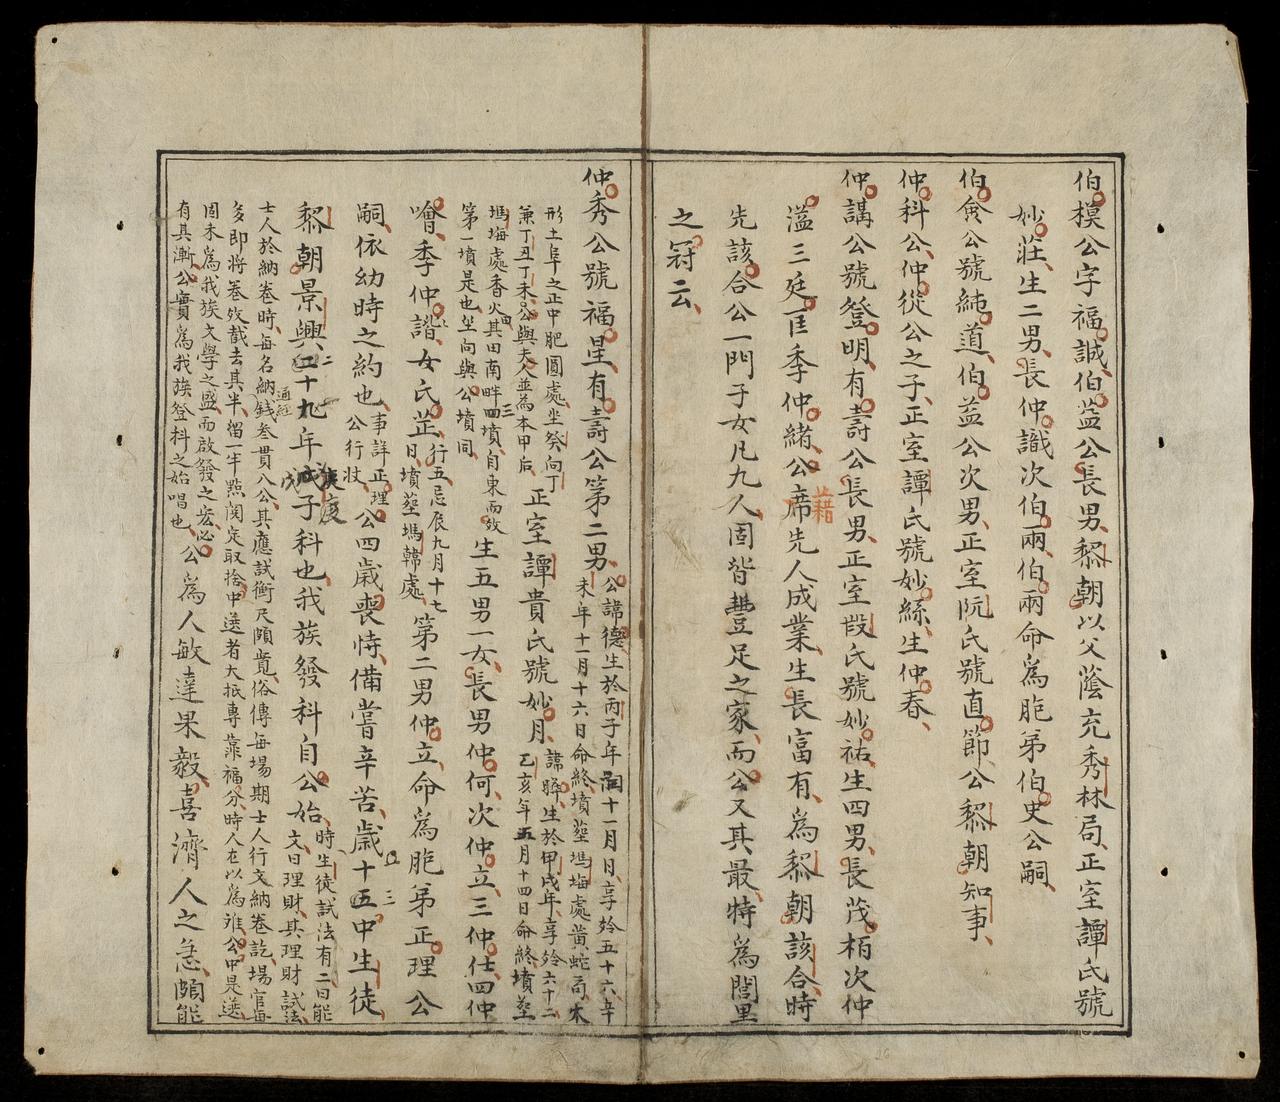 伯模公字福誠伯益公長男黎朝以父蔭充秀林局正室譚氏號
妙莊生二男長仲識次伯兩伯兩命為胞弟伯史公嗣
伯貪公號純道伯益公次男正室阮氏號直節公黎朝知事
仲科公仲從公之子正室譚氏號妙絲生仲春
仲講公號登明有壽公長男正室段氏號妙祐生四男長茂栢次仲
溢三廷匡季仲緒公席先人成業生長富有為黎朝該合時
藉
先該合公一門子女凡九人固皆豊足之家而公又其最特為閭里
之冠云
仲秀公號福星有壽公第二男
公諱德生於丙子年閏十一月月享齡五十六辛
未年十一月十六日命終墳塟塢塸處黃蛇奇木
形土阜之正中肥圓處坐癸向丁
兼丁丑丁未公與夫人並為本甲后
正室譚貴氏號妙月
諱暉生於甲戌年享齡六十二
乙亥年五月十四日命終墳塟
塢塸處香火其田南畔四墳自東而数
三
第一墳是也坐向與公墳同
生五男一女長男仲何次仲立三仲仕四仲
噲季仲諧女氏芷
行五忌辰九月十七
日墳塟塢韓處
第二男仲立命為胞弟正理公
嗣依幼時之約也
事詳正理
公行狀
公四歲喪恃備嘗辛苦歲十五中生徒
三
黎朝景興二十九年戊子科也我族發科自公始
時生徒試法有二曰能
文曰理財其理財試法
士人於納卷時每名納錢叁貫八公其應試衡尺頗寬俗傳每場期士人行文納卷訖場官每
通經
多即將卷攷截去其半留一半點閱定取捨中選者大抵專靠福分時人在以為雅公中是選
固未為我族文學之盛而啟發之宏心
有其漸公實為我族登科之始唱也
公為人敏達果毅喜濟人之急頗能